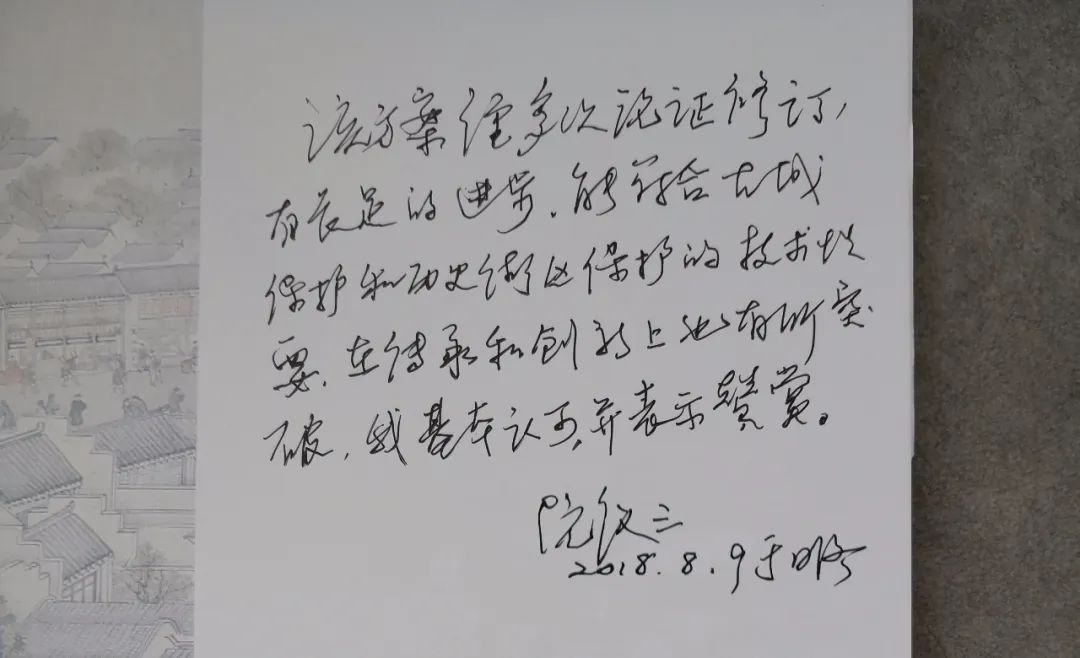 该方案经多次论证修订，
有长足的进步，能符合古城
保护和历史街区保护的技术性
要，在传承和创新上也有所突
破，我基本认可，并表示赞赏。
阮仪三
2018.8.9于